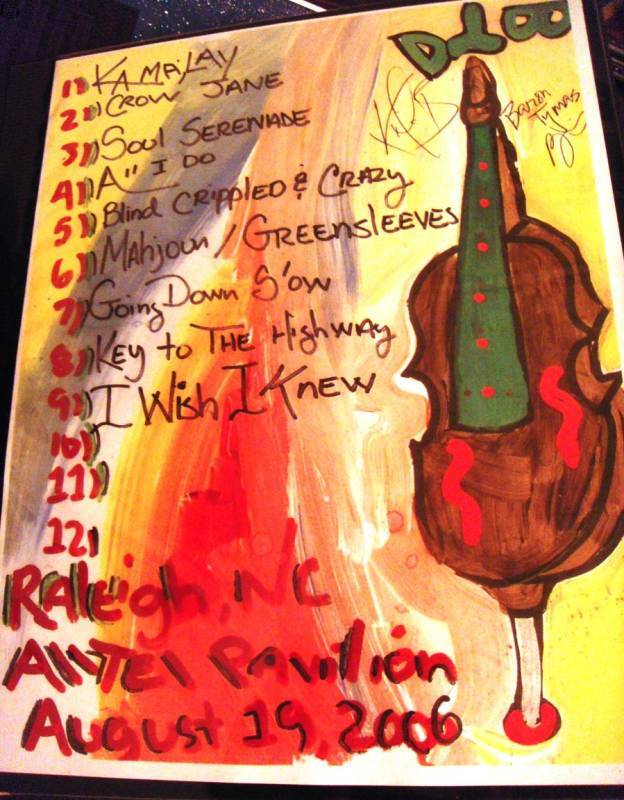 DTB
1) KAMAILAY
2) CROW JANE
3) SOUL SERENADE
4) All I DO
5) Blind CRIPPLED & CRAZY
6) MAHJOUN / GREENSLEEVES
7) Going Down Slow
8) KEY to THE HighwAy
9) I Wish I KNEW
10)
11)
12)
Raleigh, NC
Pavilion
August 19, 2006
Baron
Tymas